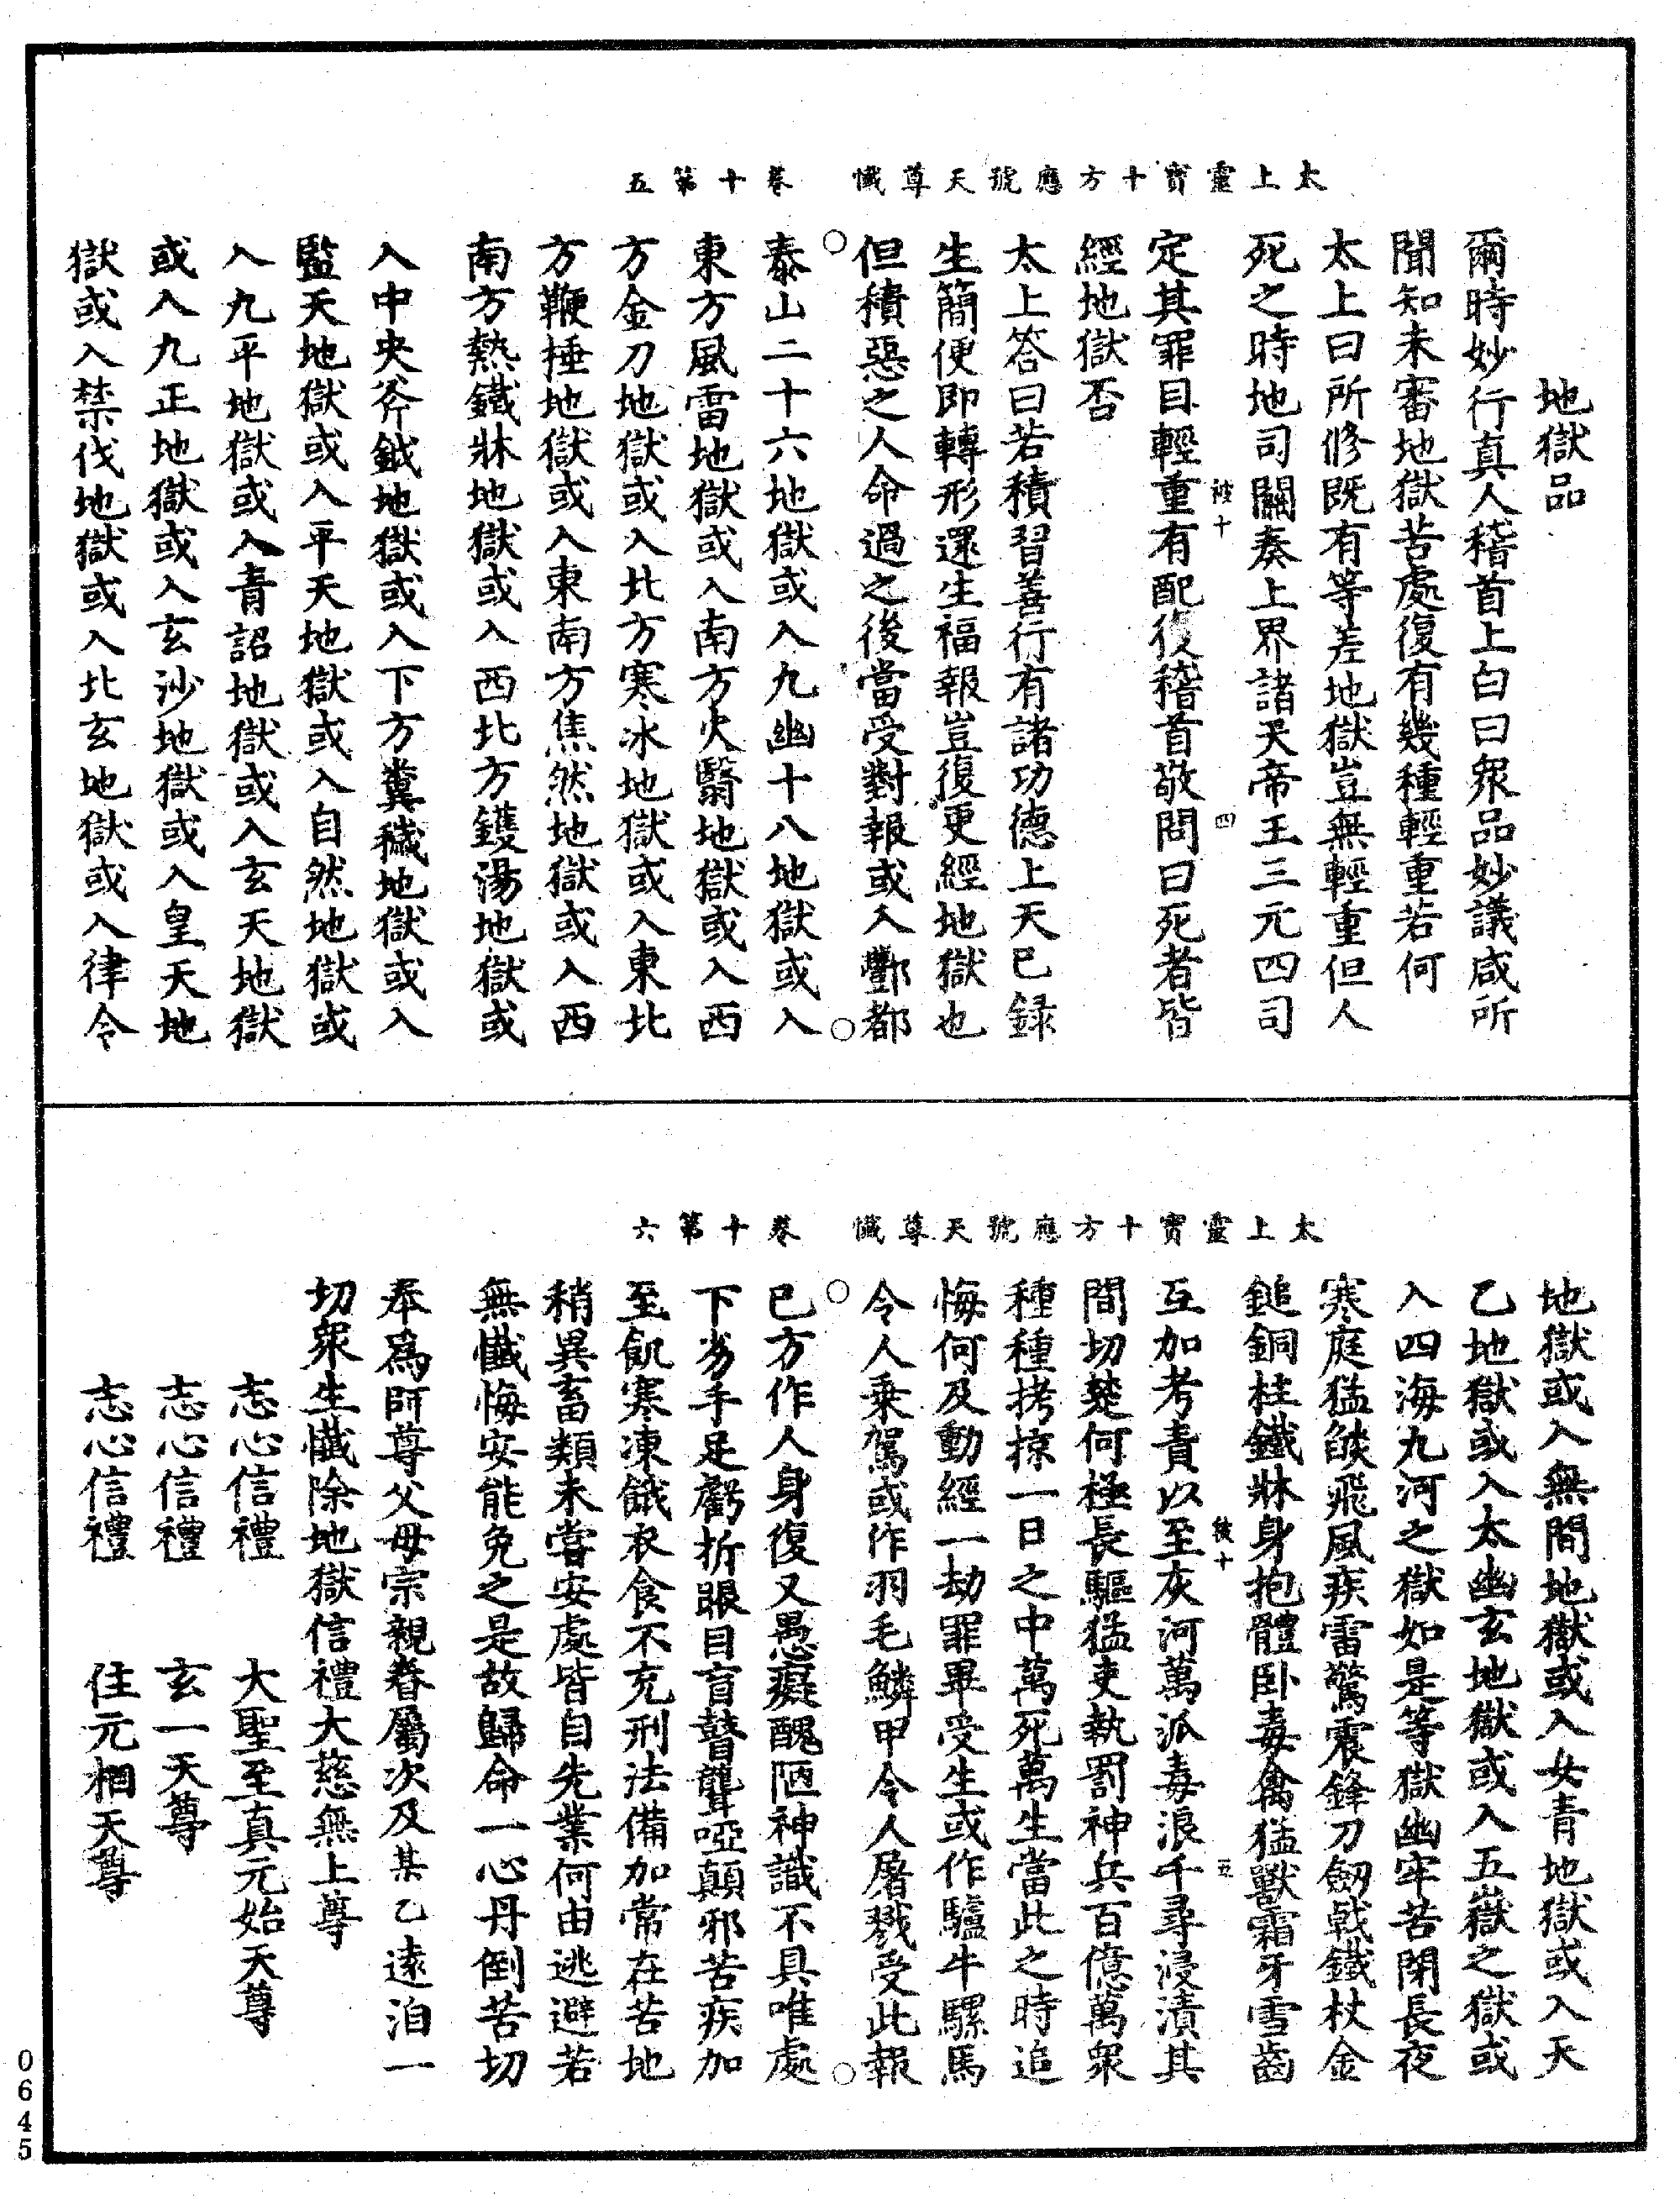 太上靈寶十方應號天尊懺　卷十第五
地獄品
爾時妙行真人稽首上白曰眾品妙議咸所
聞知未審地獄苦處復有幾種輕重若何
太上曰所修既有等差地獄豈無輕重但人
死之時地司關奏上界諸天帝王三元四司
定其罪目輕重有配復稽首敬問曰死者皆
經地獄否
太上答曰若積習善行有諸功德上天已録
生簡便即轉形還生福報豈復更經地獄也
但積惡之人命過之後當受對報或入酆都
泰山二十六地獄或入九幽十八地獄或入
東方風雷地獄或入南方火翳地獄或入西
方金刀地獄或入北方寒冰地獄或入東北
方鞭捶地獄或入東南方焦然地獄或入西
南方熱鐵牀地獄或入西北方鑊湯地獄或
入中央斧鉞地獄或入下方糞穢地獄或入
監天地獄或入平天地獄或入自然地獄或
入九平地獄或入青詔地獄或入玄天地獄
或入九正地獄或入玄沙地獄或入皇天地
獄或入禁伐地獄或入北玄地獄或入律令
太上靈寶十方應號天尊懺　卷十第六
地獄或入無間地獄或入女青地獄或入天
乙地獄或入太幽玄地獄或入五嶽之獄或
入四海九河之獄如是等獄幽牢苦閉長夜
寒庭猛燄飛風疾雷驚震鋒刀劒戟鐵杖金
鎚銅柱鐵牀身抱體卧毒禽猛獸霜牙雪齒
互加考責以至灰河萬派毒浪千尋浸漬其
間切楚何極長驅猛吏執罰神兵百億萬眾
種種拷掠一日之中萬死萬生當此之時追
悔何及動經一劫罪畢受生或作驢牛騾馬
令人乘駕或作羽毛鱗甲令人屠戮受此報
已方作人身復又愚癡醜陋神識不具唯處
下劣手足虧折眼目盲瞽聾啞顛邪苦疾加
至飢寒凍餓衣食不充刑法備加常在苦地
稍異畜類未嘗安處皆自先業何由逃避若
無懺悔安能免之是故歸命一心丹倒苦切
奉爲師尊父母宗親眷屬次及某乙遠洎一
切眾生懺除地獄信禮大慈無上尊
志心信禮　大聖至真元始天尊
志心信禮　玄一天尊
志心信禮　住元相天尊
被十　四
被十　五
0645